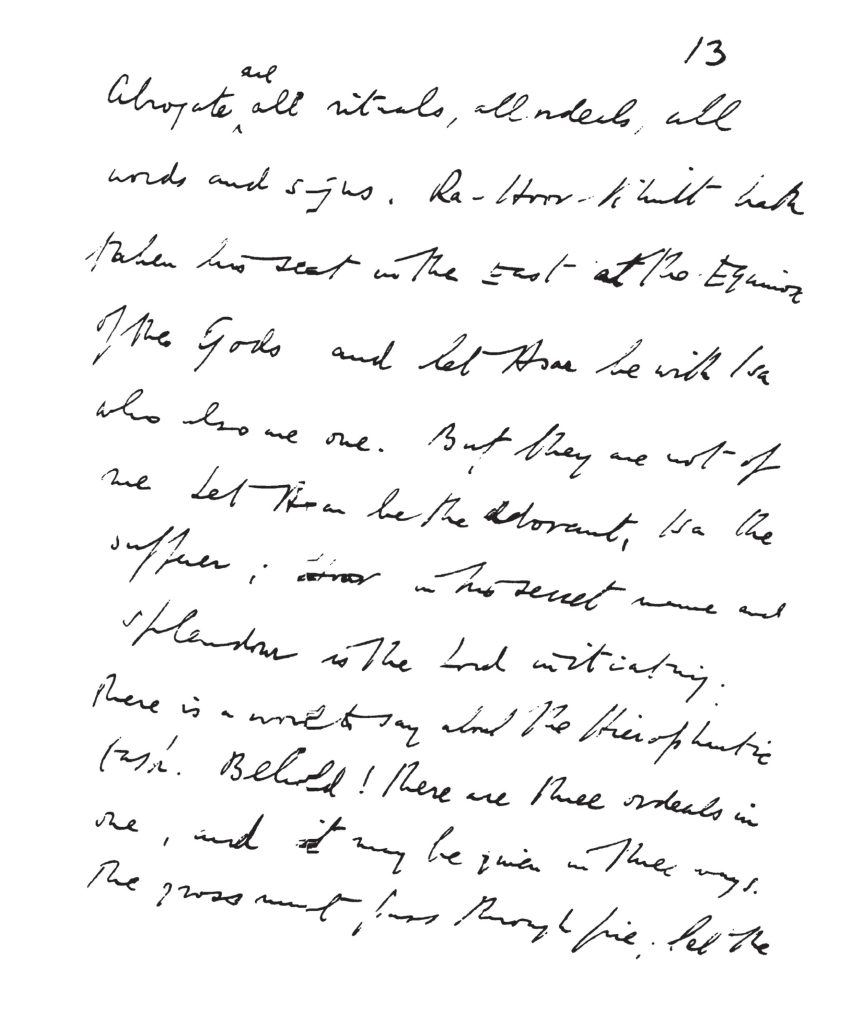 13
Abrogate are all rituals, all ordeals, all
words and signs. Ra-Hoor-Khuit hath
taken his seat in the East at the Equinox
of the Gods and let Asar be with Isa
who also are one. But they are not of
me Let Asar be the adorant, Isa the
sufferer; Hoor in his secret name and
splendour is the Lord initiating.
There is a word to say about the Hierophantic
task. Behold! there are three ordeals in
one, and it may be given in three ways.
The gross must pass through fire; let the